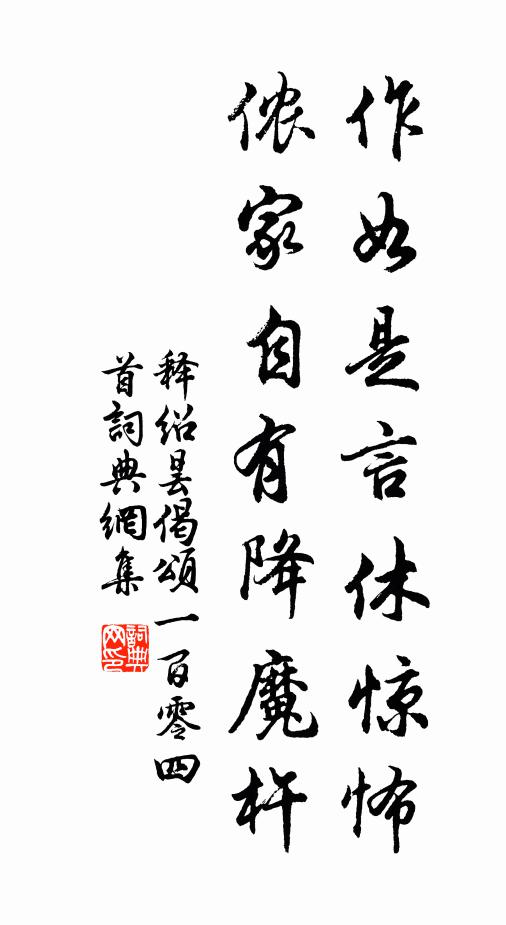 作如是言休惊怖
侬家自有降魔杵
释绍昙偈颂一百零四
首詞典網集
詞典网印